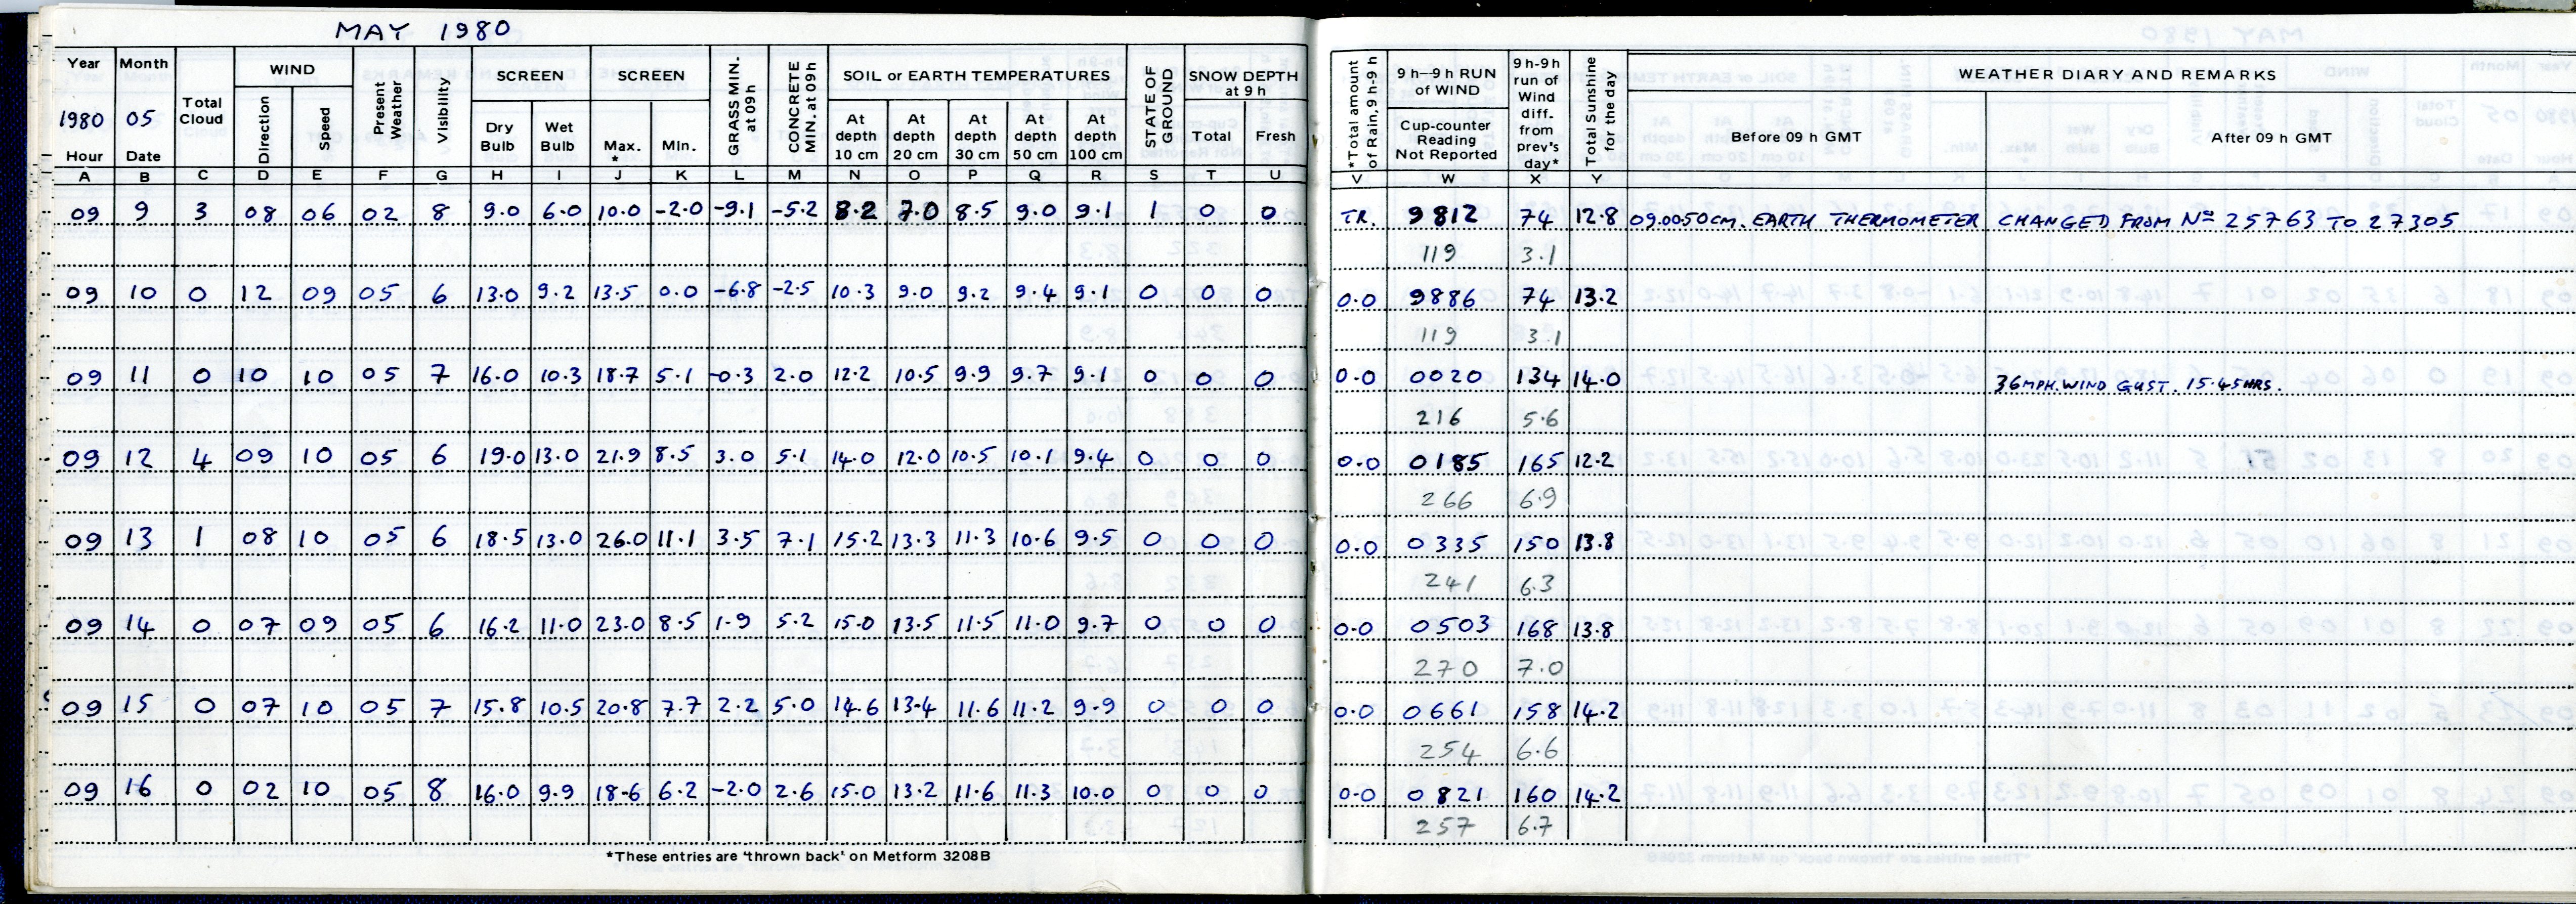 MAY 1980
Year Month Total Cloud WIND Present Weather Visibility SCREEN SCREEN GRASS MIN. at 09h CONCRETE MIN. at 09h SOIL or EARTH TEMPERATURES STATE OF GROUND SNOW DEPTH at 9 h *Total amount of Rain, 9 h-9 h 9 h—9 h RUN of WIND 9 h-9 h run of Wind diff. from prev's day* Total Sunshine for the day WEATHER DIARY AND REMARKS
1980 05 Direction Speed Dry Bulb Wet Bulb Max. * Min. At depth 10 cm At depth 20 cm At depth 30 cm At depth 50 cm At depth 100 cm Total Fresh Cup-counter Reading Not Reported Before 09 h GMT After 09 h GMT
Hour Date
A B C D E F G H I J K L M N O P Q R S T U V W X Y
09 9 3 08 06 02 8 9.0 6.0 10.0 -2.0 -9.1 -5.2 8.2 7.0 8.5 9.0 9.1 1 0 0 TR. 9812 74 12.8 09.00 50cm. EARTH THERMOMETER CHANGED FROM Nº 25763 TO 27305
119 3.1
09 10 0 12 09 05 6 13.0 9.2 13.5 0.0 -6.8 -2.5 10.3 9.0 9.2 9.4 9.1 0 0 0 0.0 9886 74 13.2
119 3.1
09 11 0 10 10 05 7 16.0 10.3 18.7 5.1 -0.3 2.0 12.2 10.5 9.9 9.7 9.1 0 0 0 0.0 0020 134 14.0 36MPH. WIND GUST. 15.45HRS.
216 5.6
09 12 4 09 10 05 6 19.0 13.0 21.9 8.5 3.0 5.1 14.0 12.0 10.5 10.1 9.4 0 0 0 0.0 0185 165 12.2
266 6.9
09 13 1 08 10 05 6 18.5 13.0 26.0 11.1 3.5 7.1 15.2 13.3 11.3 10.6 9.5 0 0 0 0.0 0335 150 13.8
241 6.3
09 14 0 07 09 05 6 16.2 11.0 23.0 8.5 1.9 5.2 15.0 13.5 11.5 11.0 9.7 0 0 0 0.0 0503 168 13.8
270 7.0
09 15 0 07 10 05 7 15.8 10.5 20.8 7.7 2.2 5.0 14.6 13.4 11.6 11.2 9.9 0 0 0 0.0 0661 158 14.2
254 6.6
09 16 0 02 10 05 8 16.0 9.9 18.6 6.2 -2.0 2.6 15.0 13.2 11.6 11.3 10.0 0 0 0 0.0 0821 160 14.2
257 6.7
*These entries are 'thrown back' on Metform 3208B